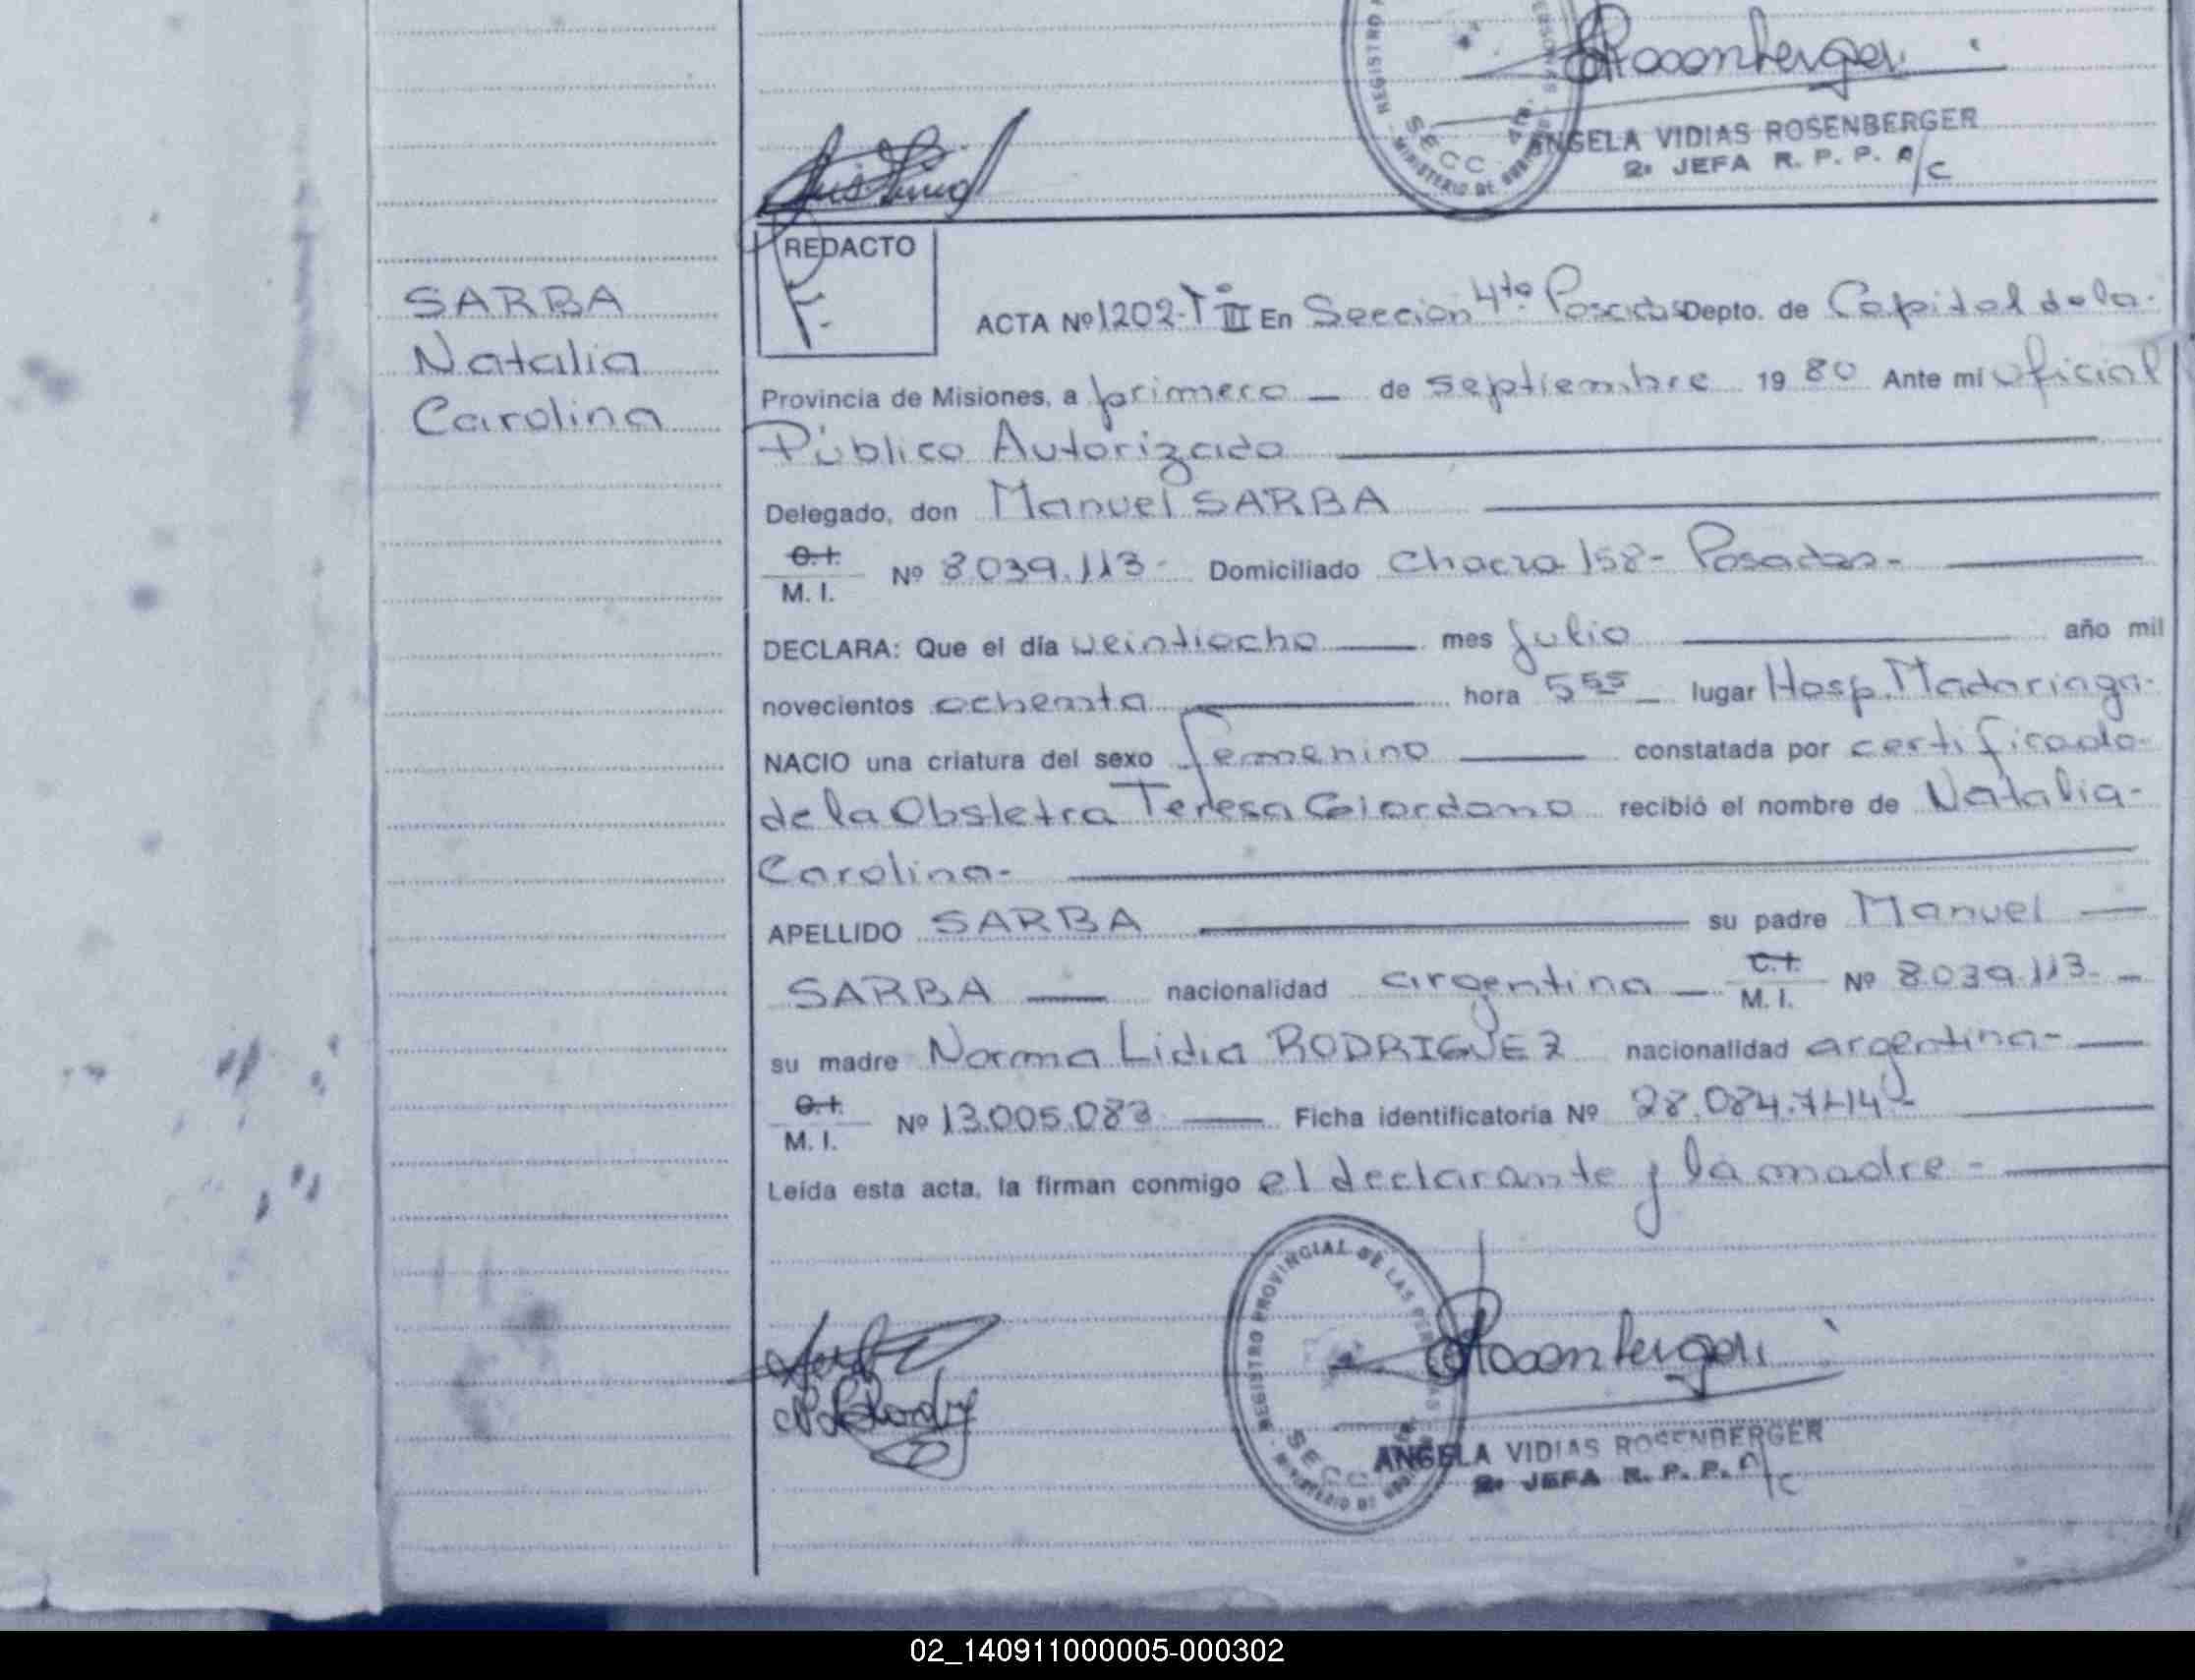 REGISTRO
PERSONAS
SECC. 4ta.
MINISTERIO DE
Rosenberger
ANGELA VIDIAS ROSENBERGER
2a JEFA R. P. P. A/C
SARBA
Natalia
Carolina
REDACTO
ACTA Nº 1202-Tº III En Sección 4ta Posadas Depto. de Capital de la-
Provincia de Misiones, a primero — de septiembre 1980 Ante mi Oficial
Público Autorizado
Delegado, don Manuel SARBA
C.I.
M. I. Nº 8.039.113- Domiciliado Chacra 158- Posadas-
DECLARA: Que el día veintiocho mes Julio año mil
novecientos ochenta hora 5 55 lugar Hosp. Madariaga-
NACIO una criatura del sexo femenino constatada por certificado-
de la Obstetra Teresa Giordano recibió el nombre de Natalia-
Carolina-
APELLIDO SARBA su padre Manuel
SARBA nacionalidad argentina C.I.
M. I. Nº 8.039.113-
su madre Norma Lidia RODRIGUEZ nacionalidad argentina-
C.I.
M. I. Nº 13.005.083 Ficha identificatoria Nº 28.084.744-
Leída esta acta, la firman conmigo el declarante y la madre-
REGISTRO PROVINCIAL DE LAS PERSONAS
SECC.
MINISTERIO DE
Rosenberger
ANGELA VIDIAS ROSENBERGER
2a JEFA R. P. P. A/C
02_140911000005-000302